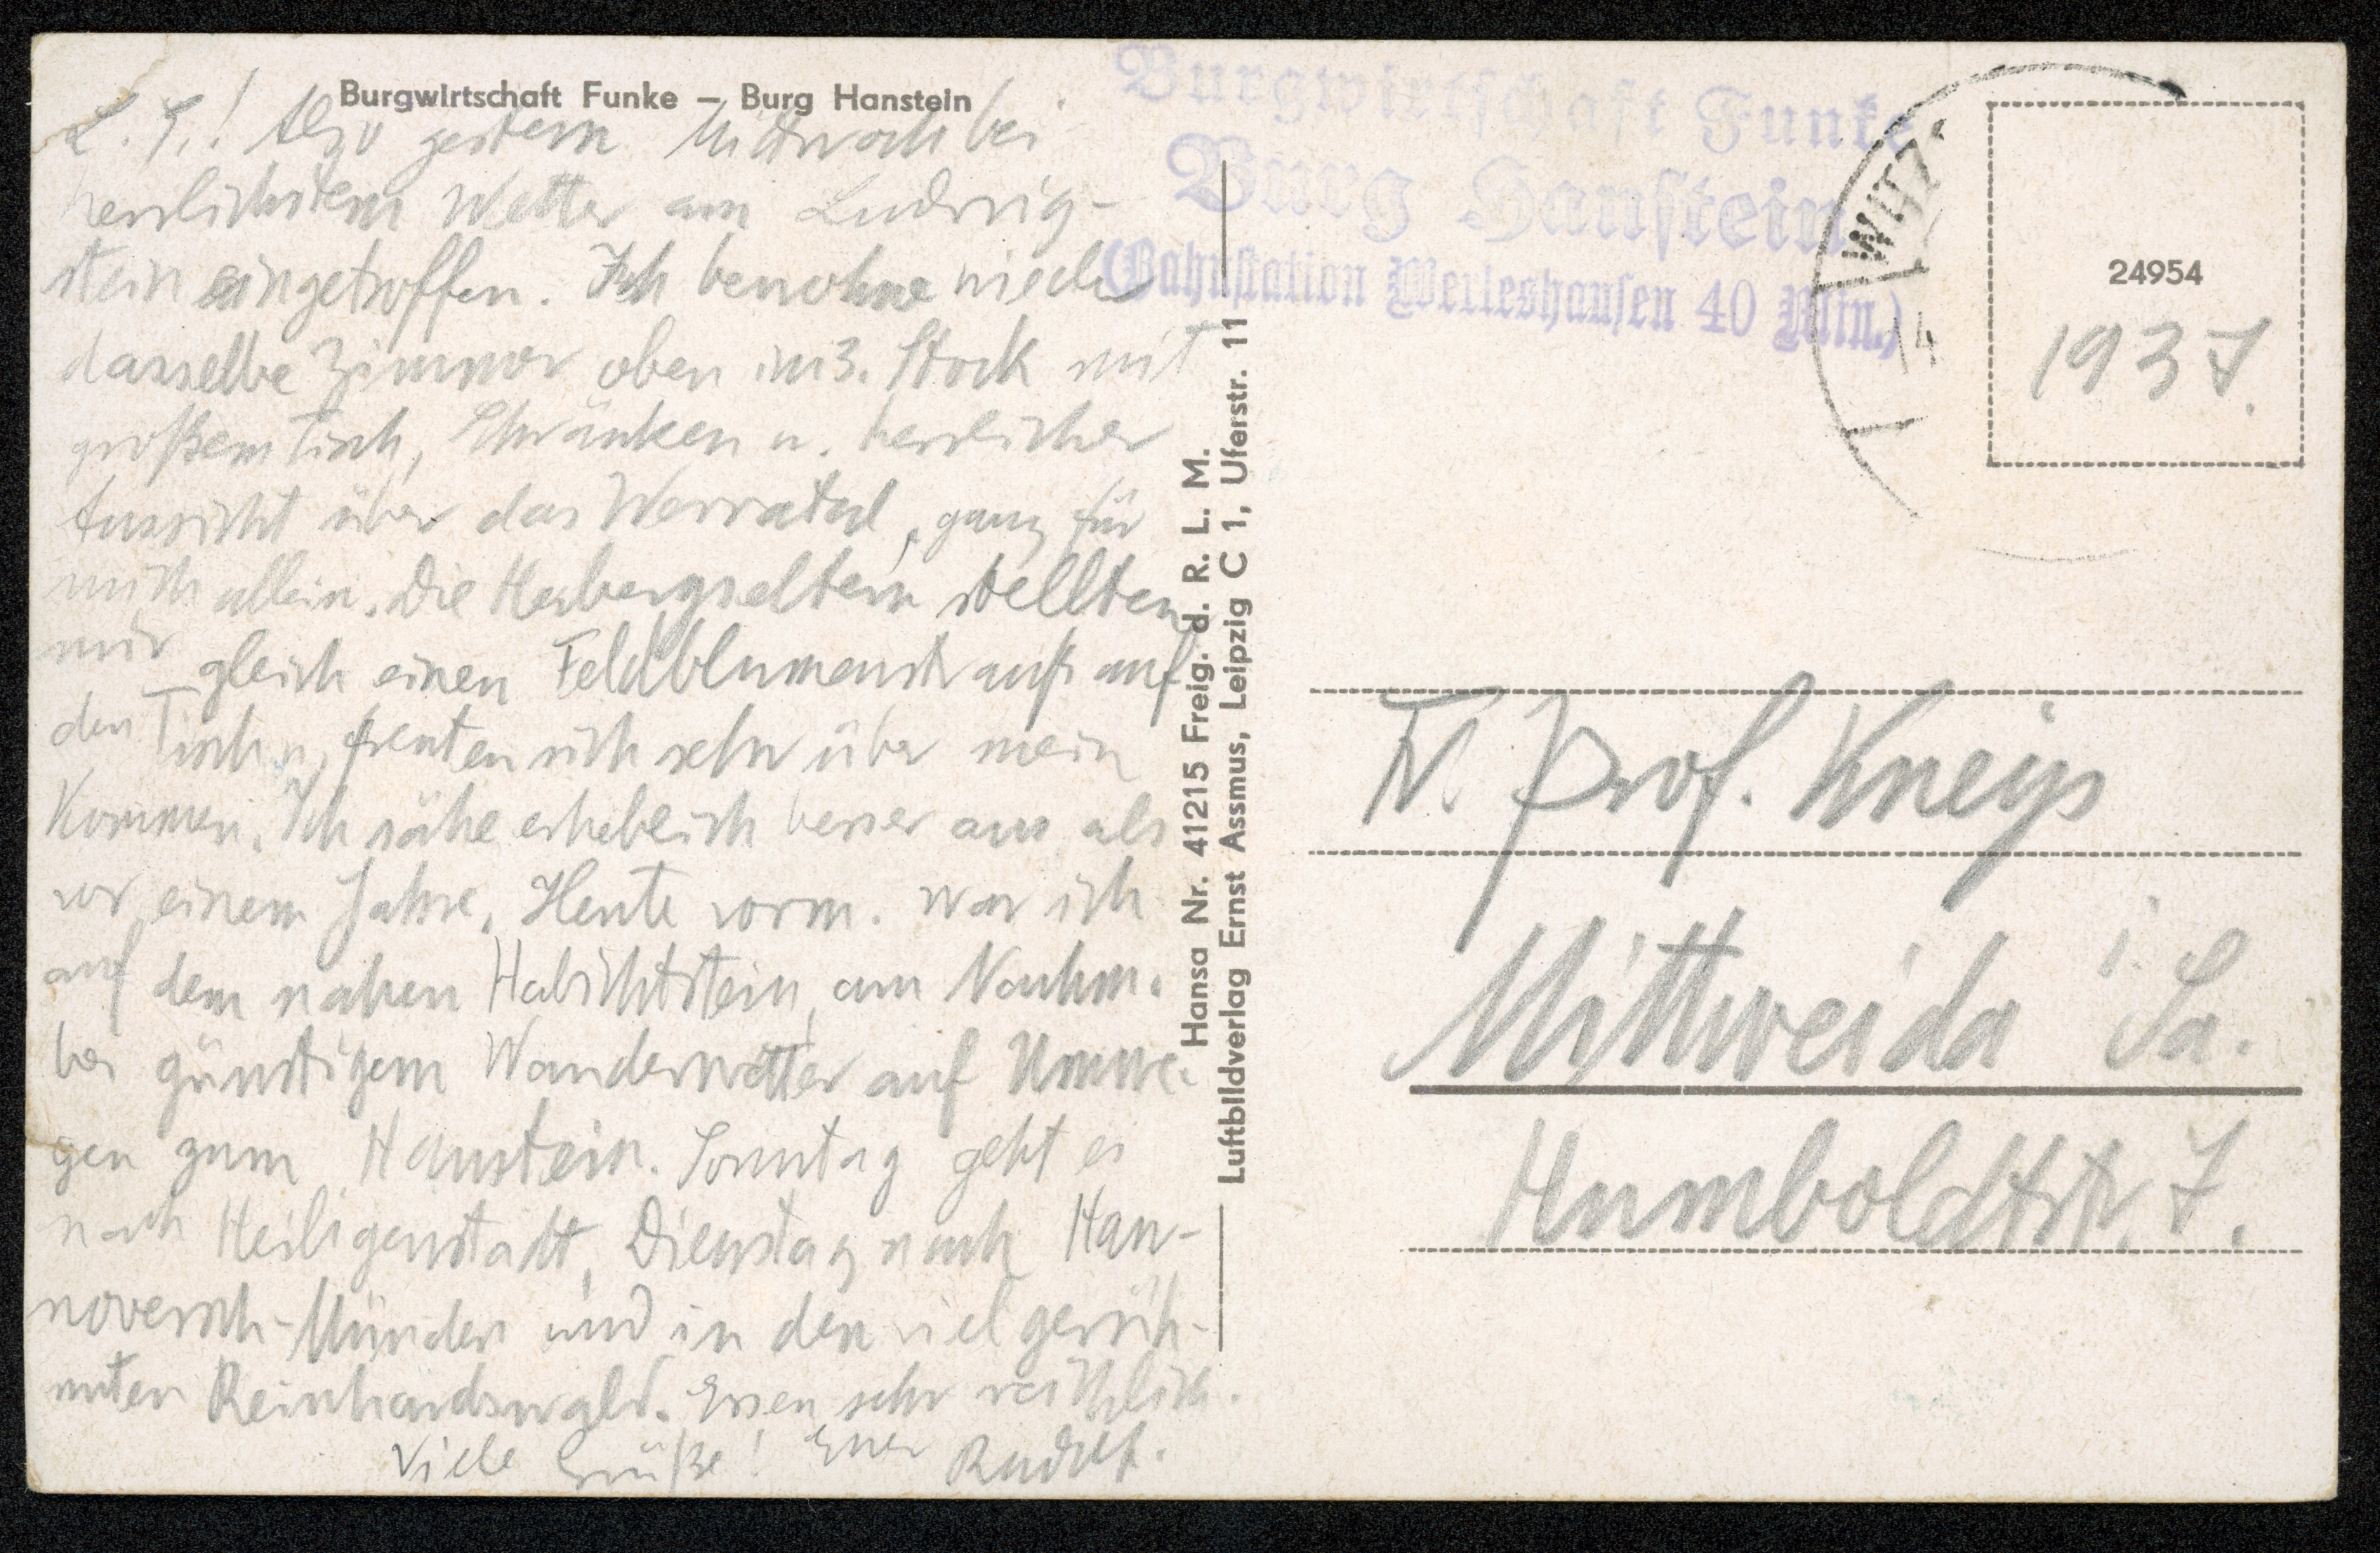 Burgwirtschaft Funke – Burg Hanstein
L. T.! Also gestern Mittwoch bei
herrlichstem Wetter am Ludwig-
stein eingetroffen. Ich bewohne wieder
dasselbe Zimmer oben im 3. Stock mit
großem Tisch, Schränken u. herrlicher
Aussicht über das Werratal, ganz für
mich allein. Die Herbergseltern stellten
mir gleich einen Feldblumenstrauß auf
den Tisch u. freuten sich sehr über mein
Kommen. Ich sähe erheblich besser aus als
vor einem Jahre. Heute vorm. war ich
auf dem nahen Habichtstein, am Nachm.
bei günstigem Wanderwetter auf Umwe-
gen zum Hanstein. Sonntag geht es
nach Heiligenstadt, Dienstag nach Han-
noversch-Münden und in den viel gerüh-
mten Reinhardswald. Essen sehr reichlich.
Viele Grüße! Euer Rudolf.
Hansa Nr. 41215 Freig. d. R. L. M.
Luftbildverlag Ernst Assmus, Leipzig C 1, Uferstr. 11
Burgwirtschaft Funke
Burg Hanstein
(Bahnstation Werleshausen 40 Min.)
WITZ
14
24954
1937.
Fr. Prof. Kneip
Mittweida i. Sa.
Humboldtstr. 7.